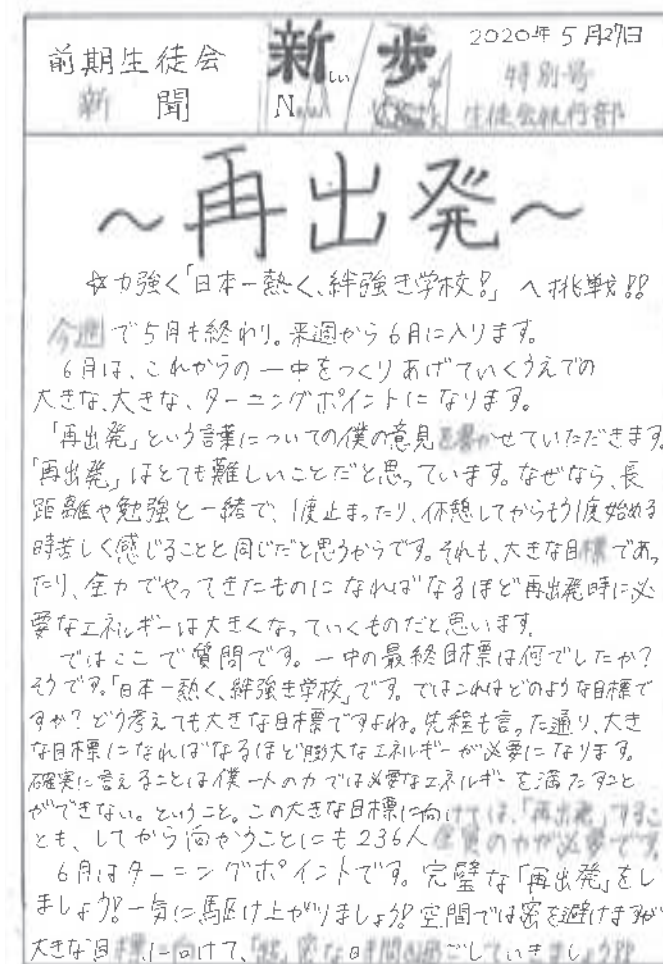 前期生徒会
新聞
新しい歩
New
2020年5月27日
特別号
生徒会執行部
～再出発～
☆力強く「日本一熱く、絆強き学校!!」へ挑戦!!
今週で5月も終わり。来週から6月に入ります。
6月は、これからの一中をつくりあげていくうえでの
大きな、大きな、ターニングポイントになります。
「再出発」という言葉についての僕の意見を書かせていただきます。
「再出発」はとても難しいことだと思っています。なぜなら、長
距離や勉強と一緒で、1度止まったり、休憩してからもう1度始める
時苦しく感じることと同じだと思うからです。それも、大きな目標であっ
たり、全力でやってきたものになればなるほど再出発時に必
要なエネルギーは大きくなっていくものだと思います。
ではここで質問です。一中の最終目標は何でしたか?
そうです。「日本一熱く、絆強き学校」です。ではこれはどのような目標で
すか?どう考えても大きな目標ですよね。先程も言った通り、大き
な目標になればなるほど膨大なエネルギーが必要になります。
確実に言えることは僕一人の力では必要なエネルギーを満たすこと
ができない。ということ。この大きな目標に向けては、「再出発」するこ
とも、してから向かうことにも236人全員の力が必要です。
6月はターニングポイントです。完璧な「再出発」をし
ましょう!!一気に駆け上がりましょう!!空間では密を避けますが
大きな目標に向けて、密な時間を過ごしていきましょう!!